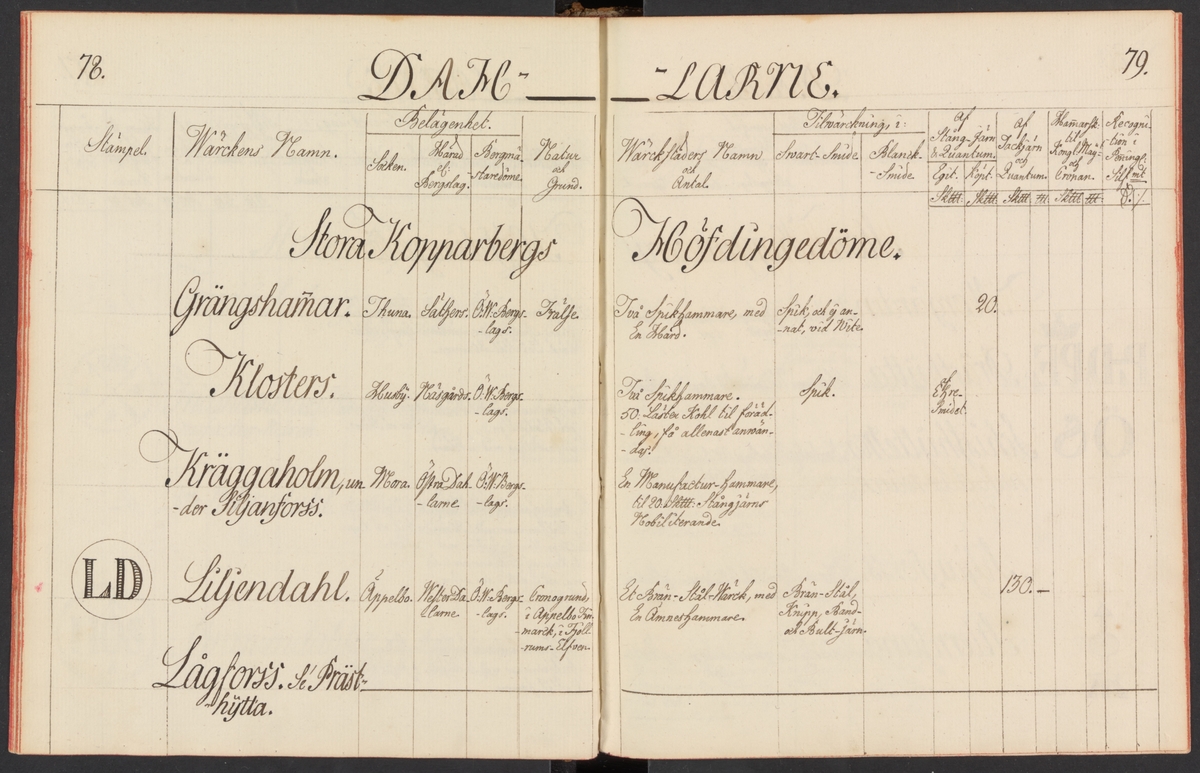 78.
DAH-
-LARNE.
79.
Stämpel.
Wärckens Namn.
Belägenhet.
Socken.
Härad
el:
Bergslag.
Bergmä-
staredöme.
Natur
och
Grund.
Wärckstäders Namn
och
Antal.
Tilwärcknings i:
Svart-Smide.
Blanck-
-Smide.
Af
Stång-Järn
E Quantum.
Egit.
Köpt.
Af
Tackjärn
och
Quantum.
Ham̄arsk:
til
Kongl. May:t
och
Cronan.
Recogni-
tion i
Päningl:
Silf:mt
Sk℔:
Sk℔:
Sk℔:
Sk℔:
Stora Kopparbergs
Höfdingedöme.
Grängsham̄ar.
Thuna.
Säthers.
Ö.W. Bergs-
-lags.
Frälse.
Två Spikhammare, med
En Härd.
Spik, och ej an-
-nat, vid Wite.
20.
Klosters.
Husby.
Näsgårds.
Ö.W. Bergs-
-lags.
Två Spikhammare.
50: Läster Kohl til föräd-
-ling, få allenast anwän-
-das.
Spik.
Smidet.
Kräggaholm, un-
-der Siljanforss.
Mora.
Östra Dah-
-larne.
Ö.W. Bergs-
-lags.
En Manufactur-hammare,
til 20: Sk℔: Stångjärns
Nobiliterande.
LD
Liljendahl.
Äppelbo.
Wester Da-
-larne.
Ö.W. Bergs-
-lags.
Cronogrund,
i Äppelbo Fin-
-marck, i Fjöll-
-rums-Elfven.
Et Brän-Stål-Wärck, med
En Ämneshammare.
Brän-Stål,
Knipp, Band-
och Bult-järn.
130.-
Lågforss. Se Präst-
-hytta.